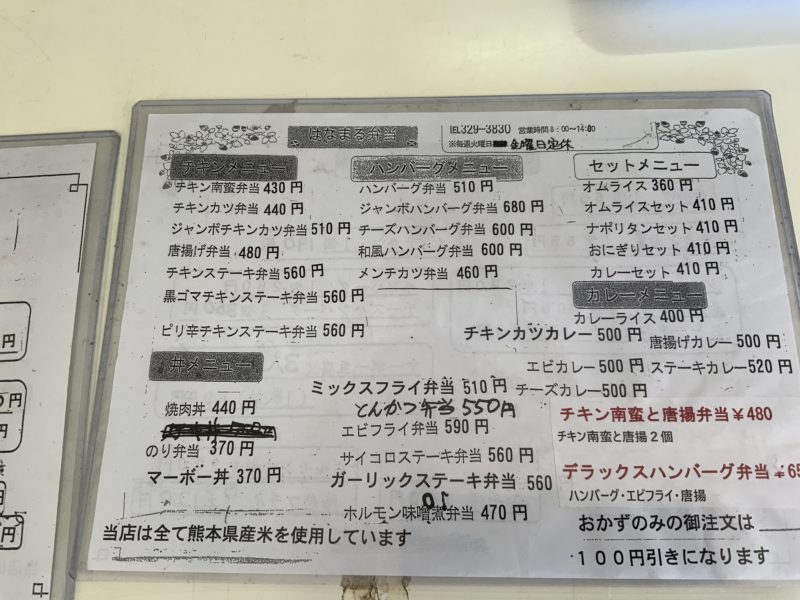 はなまる弁当
TEL329-3830 営業時間8：00〜14:00
※毎週火曜日 金曜日定休
チキンメニュー
チキン南蛮弁当 430 円
チキンカツ弁当 440 円
ジャンボチキンカツ弁当 510 円
唐揚げ弁当 480 円
チキンステーキ弁当 560 円
黒ゴマチキンステーキ弁当 560 円
ピリ辛チキンステーキ弁当 560 円
丼メニュー
焼肉丼 440 円
のり弁当 370 円
マーボー丼 370 円
ハンバーグメニュー
ハンバーグ弁当 510 円
ジャンボハンバーグ弁当 680 円
チーズハンバーグ弁当 600 円
和風ハンバーグ弁当 600 円
メンチカツ弁当 460 円
ミックスフライ弁当 510 円
とんかつ弁当 550円
エビフライ弁当 590 円
サイコロステーキ弁当 560 円
ガーリックステーキ弁当 560
ホルモン味噌煮弁当 470 円
セットメニュー
オムライス 360 円
オムライスセット 410 円
ナポリタンセット 410 円
おにぎりセット 410 円
カレーセット 410 円
カレーメニュー
カレーライス 400 円
チキンカツカレー 500 円
唐揚げカレー 500 円
エビカレー 500 円
ステーキカレー 520 円
チーズカレー 500 円
チキン南蛮と唐揚弁当￥480
チキン南蛮と唐揚２個
デラックスハンバーグ弁当￥65
ハンバーグ・エビフライ・唐揚
おかずのみの御注文は
１００円引きになります
当店は全て熊本県産米を使用しています